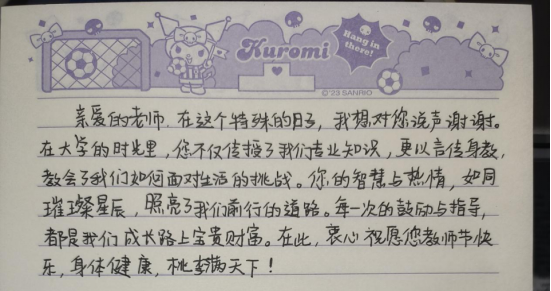 Kuromi
Hang in
there!
©'23 SANRIO
亲爱的老师.在这个特殊的日子，我想对你说声谢谢。
在大学的时光里，您不仅传授了我们专业知识，更以言传身教，
教会了我们如何面对生活的挑战。你的智慧与热情，如同
璀璨星辰，照亮了我们前行的道路。每一次的鼓励与指导，
都是我们成长路上宝贵财富。在此，衷心祝愿您教师节快
乐，身体健康，桃李满天下！